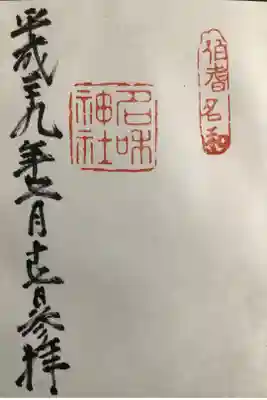 伯耆名和
名和神社
平成二九年七月十七日参拝